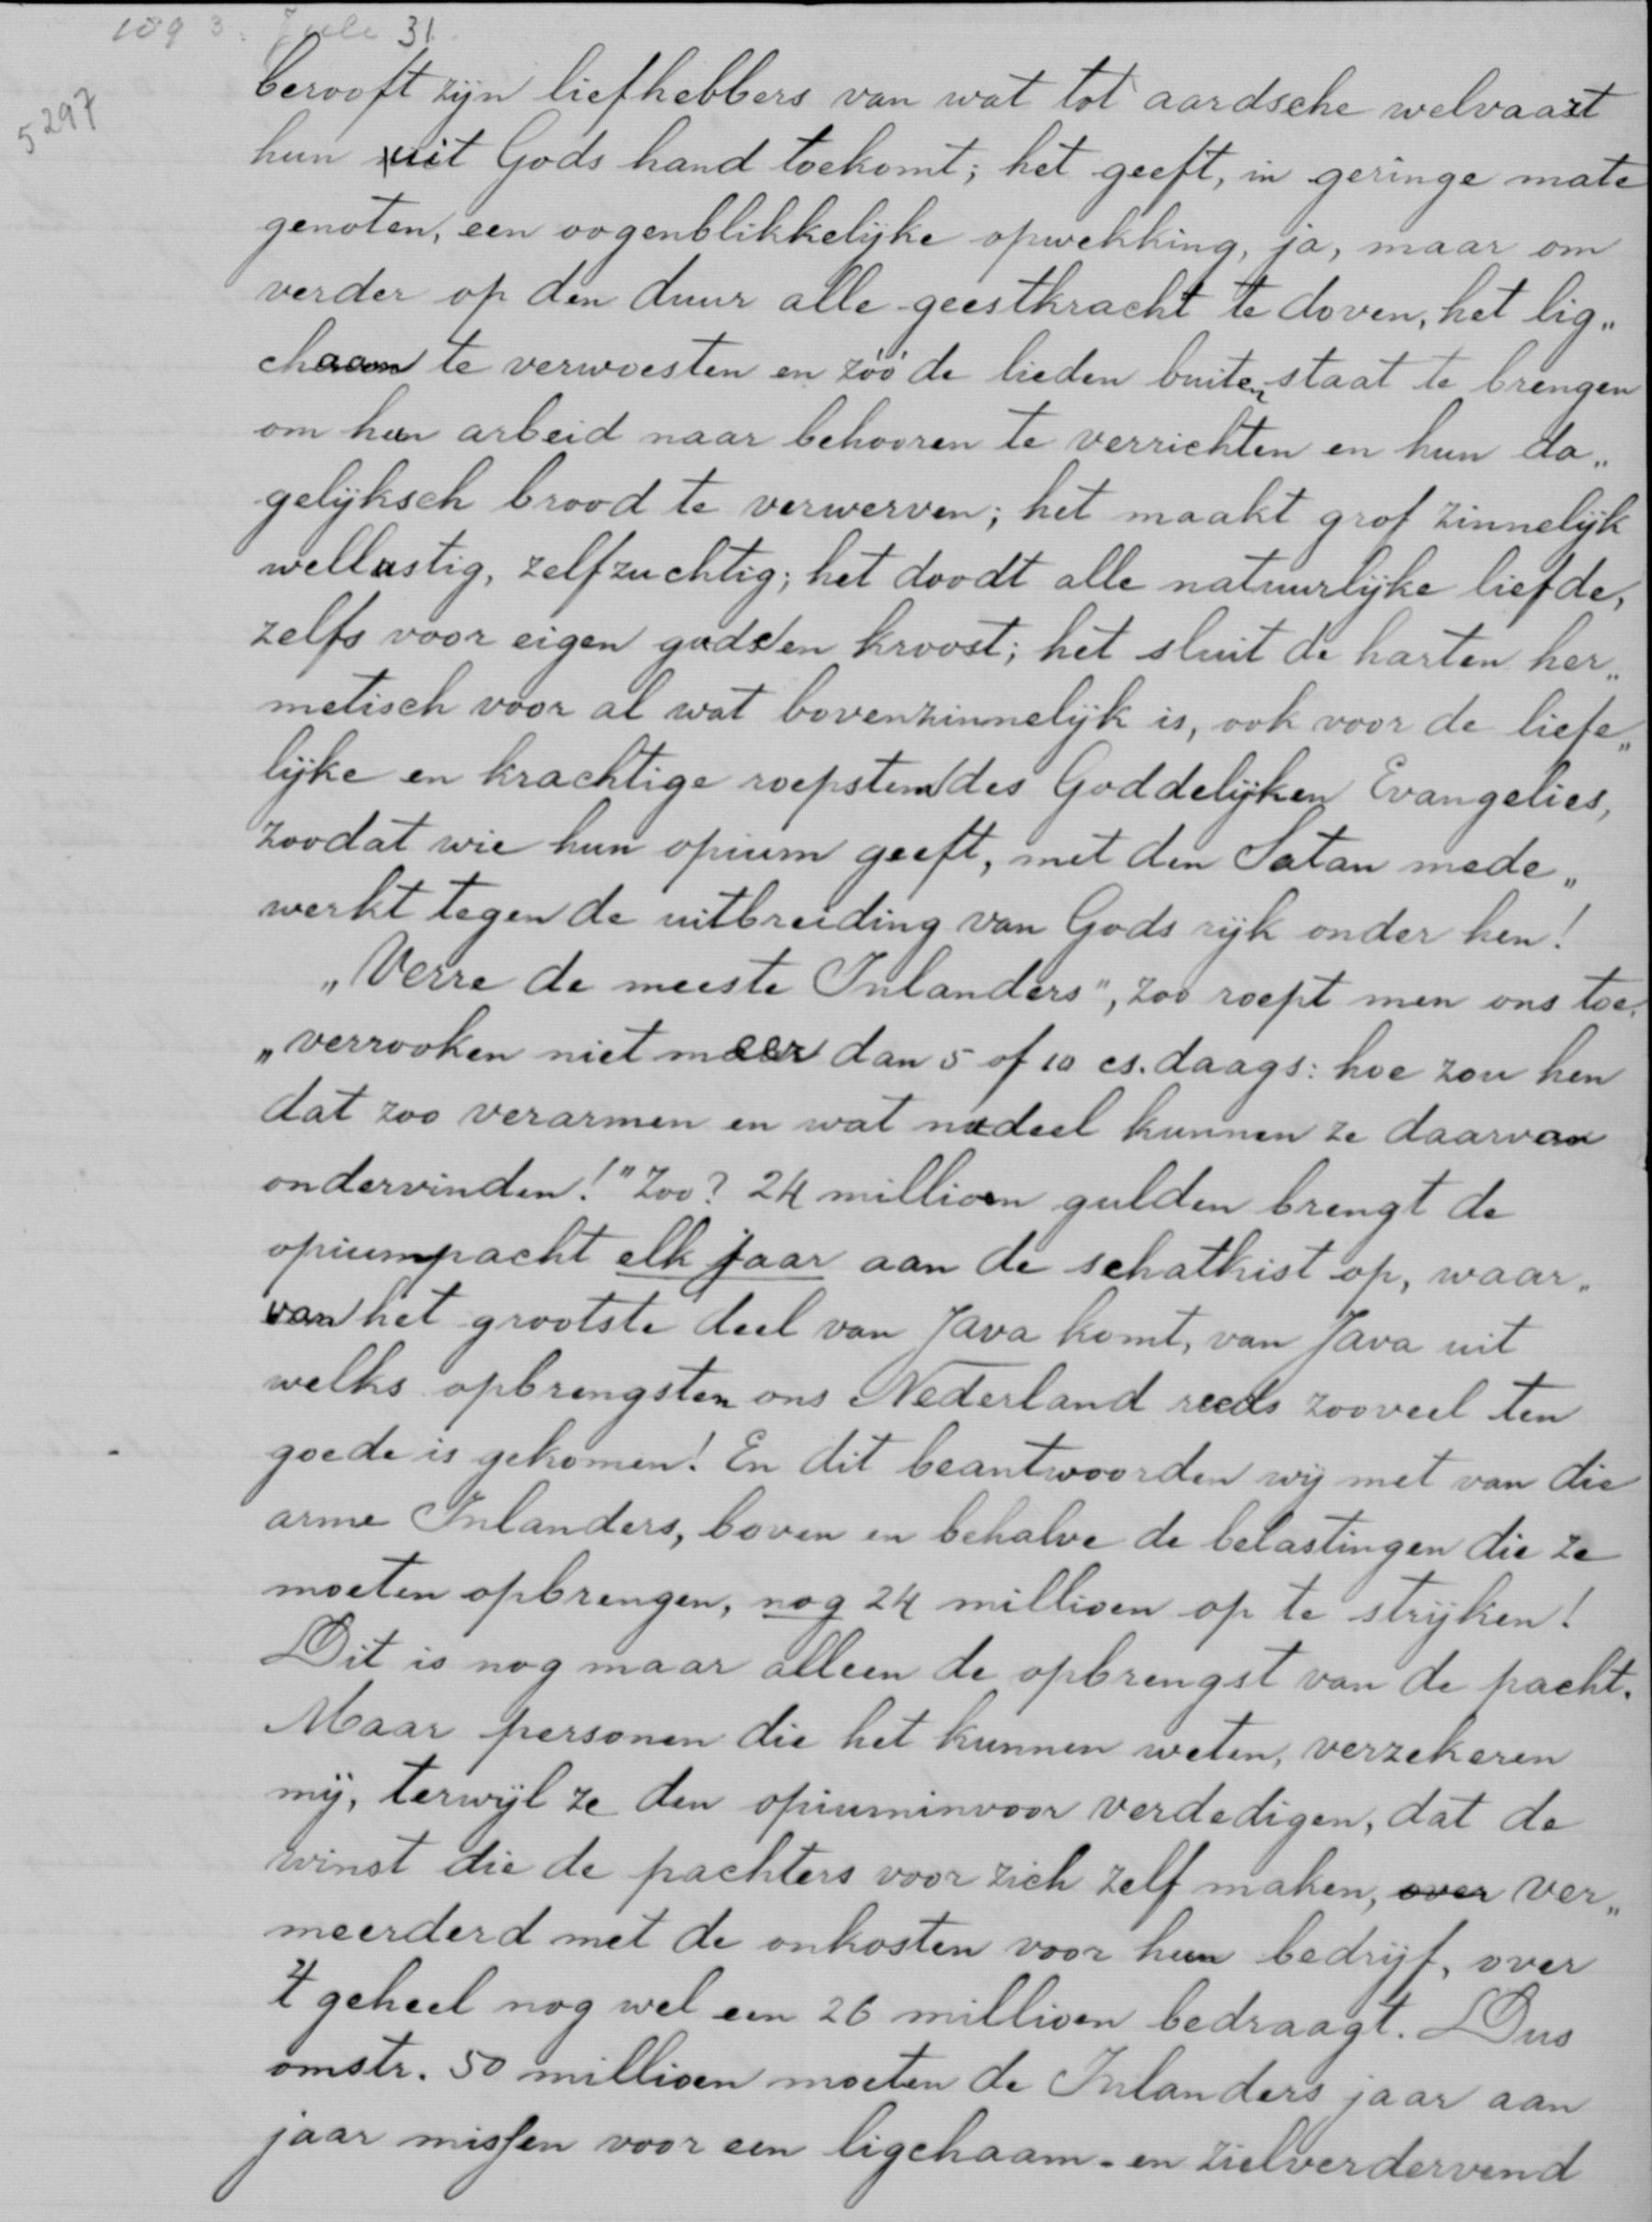 1893. Juli 31.
5297
berooft zijn liefhebbers van wat tot aardsche welvaart
hun uit Gods hand toekomt; het geeft, in geringe mate
genoten, een oogenblikkelijke opwekking, ja, maar om
verder op den duur alle geestkracht te doven, het lig„
chaam te verwoesten en zóó de lieden buiten staat te brengen
om hun arbeid naar behooren te verrichten en hun da„
gelijksch brood te verwerven; het maakt grof zinnelijk
wellustig, zelfzuchtig; het doodt alle natuurlijke liefde,
zelfs voor eigen gade en kroost; het sluit de harten her„
metisch voor al wat bovenzinnelijk is, ook voor de liefe„
lijke en krachtige roepstem des Goddelijken Evangelies,
zoodat wie hun opium geeft, met den Satan mede„
werkt tegen de uitbreiding van Gods rijk onder hen!
„Verre de meeste Inlanders", zoo roept men ons toe,
„verrooken niet meer dan 5 of 10 cs. daags: hoe zou hen
dat zoo verarmen en wat nadeel kunnen ze daarvan
ondervinden!" Zoo? 24 millioen gulden brengt de
opiumpacht elk jaar aan de schatkist op, waar„
van het grootste deel van Java komt, van Java uit
welks opbrengsten ons Nederland reeds zooveel ten
goede is gekomen! En dit beantwoorden wij met van die
arme Inlanders, boven en behalve de belastingen die ze
moeten opbrengen, nog 24 millioen op te strijken!
Dit is nog maar alleen de opbrengst van de pacht.
Maar personen die het kunnen weten, verzekeren
mij, terwijl ze den opiuminvoor verdedigen, dat de
winst die de pachters voor zich zelf maken, over ver„
meerderd met de onkosten voor hun bedrijf, over
't geheel nog wel een 26 millioen bedraagt. Dus
omstr. 50 millioen moeten de Inlanders jaar aan
jaar missen voor een ligchaam- en zielverdervend